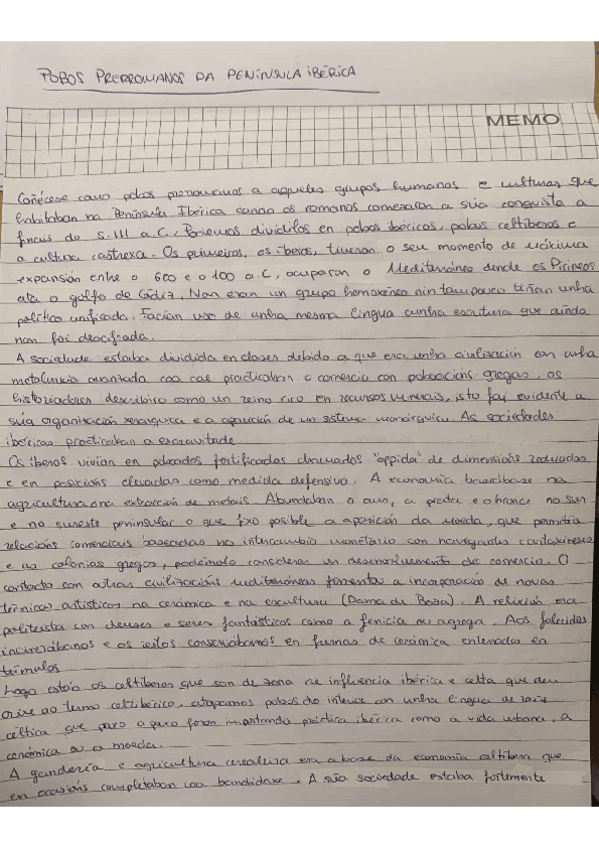 POBOS PRERROMANOS DA PENÍNSULA IBÉRICA
MEMO
Coñécese como pobos prerromanos a aqueles grupos humanos e culturas que
habitaban na Península Ibérica cando os romanos comezaron a súa conquista a
finais do S.III a C. Podemos dividilos en pobos ibéricos, pobos celtíberos e
a cultura castrexa. Os primeiros, os iberos, tiveron o seu momento de máxima
expansión entre o 600 e o 100 a.C, ocuparon o Mediterráneo dende os Pirineos
ata o golfo de Cádiz. Non eran un grupo homoxéneo nin tampouco tiñan unha
política unificada. Facían uso de unha mesma lingua cunha escritura que aínda
non foi descifrada.
A sociedade estaba dividida en clases debido a que era unha civilización con unha
metalurxia avanzada coa cal practicaban o comercio con poboacións gregas, os
historiadores como un reino rico en recursos minerais, isto fai evidente a
súa organización xerárquica e a aparición de un sistema monárquico. As sociedades
ibéricas practicaban a escravitude.
Os iberos vivían en poboados fortificados chamados "oppida" de dimensións reducidas
e en posicións elevadas como medida defensiva. A economía basábase na
agricultura na extracción de metais. Abundaban o ouro, a prata e o bronce no sur
e no sureste peninsular o que fixo posible a aparición da moeda, que permitía
relacións comerciais baseadas no intercambio monetario con navegantes cartaxineses
e as colonias gregas, podémolo considerar un desenvolvemento do comercio. O
contacto con outras civilizacións mediterráneas fomentou a incorporación de novas
técnicas artísticas na cerámica e na escultura (Dama de Baza). A relixión era
politeísta con deuses e seres fantásticos como a fenicia ou a grega. Aos falecidos
incinerábanos e os restos conservábanos en furnas de cerámica enterradas en
túmulos
Logo están os celtíberos que son de zona de influencia ibérica e celta que deu
orixe ao termo celtibérico, atopamos pobos do interior con unha lingua de raíz
céltica que paso a paso foron importando práctica ibérica como a vida urbana, a
cerámica ou a moeda.
A gandería e agricultura cerealeira era a base da economía celtíbera que
en ocasións completaban coa bandidaxe. A súa sociedade estaba fortemente